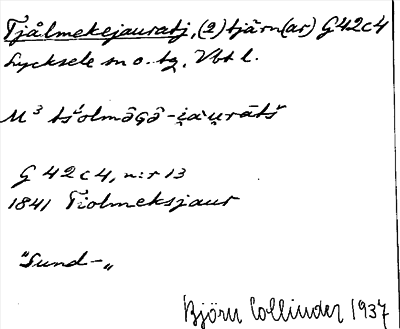 Tjålmekejauratj, (2) tjärn(ar) G42c4
Lycksele sn o. tg, Vbt l.
M³ tśolmǡGǡ-i̯au̯rātš
G 42 c 4, n:r 13
1841 Tiolmeksjaur
"Sund-"
Björn Collinder 1937